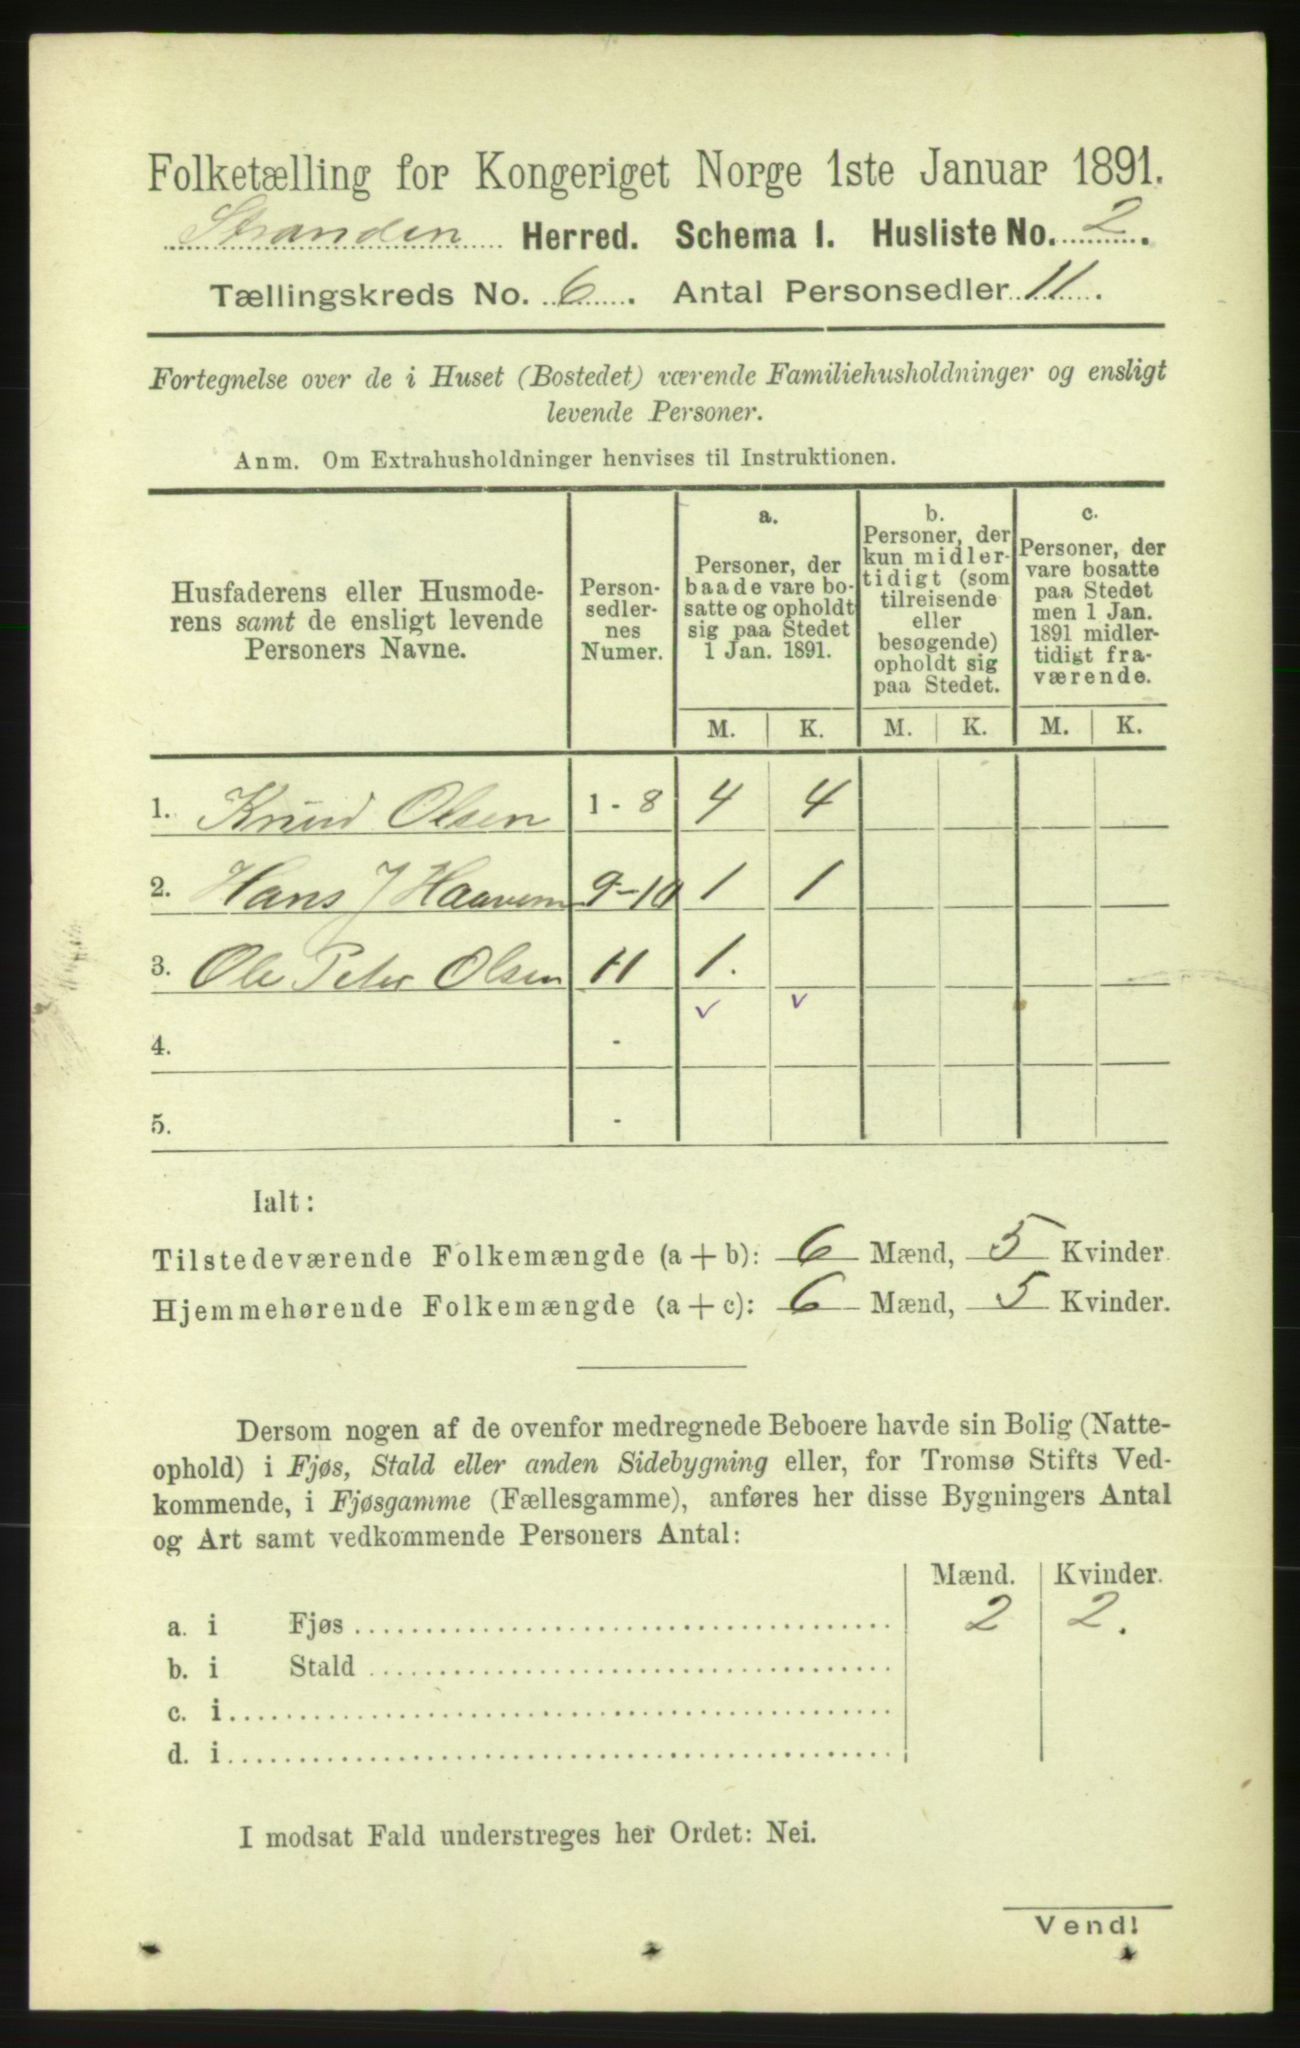 Folketælling for Kongeriget Norge 1ste Januar 1891.
Stranden Herred. Schema I. Husliste No. 2.
Tællingskreds No. 6. Antal Personsedler 11.
Fortegnelse over de i Huset (Bostedet) værende Familiehusholdninger og ensligt
levende Personer.
Anm. Om Extrahusholdninger henvises til Instruktionen.
Husfaderens eller Husmode-
rens samt de ensligt levende
Personers Navne.
Person-
sedler-
nes
Numer.
a.
Personer, der
baade vare bo-
satte og opholdt
sig paa Stedet
1 Jan. 1891.
b.
Personer, der
kun midler-
tidigt (som
tilreisende
eller
besøgende)
opholdt sig
paa Stedet.
c.
Personer, der
vare bosatte
paa Stedet
men 1 Jan.
1891 midler-
tidigt fra-
værende.
M. K. M. K. M. K.
1. Knud Olsen 1 - 8 4 4
2. Hans J 9-10 1 1
3. Ole Peter Olsen 11 1.
4. -
5. -
Ialt:
Tilstedeværende Folkemængde (a + b): 6 Mænd, 5 Kvinder.
Hjemmehørende Folkemængde (a + c): 6 Mænd, 5 Kvinder.
Dersom nogen af de ovenfor medregnede Beboere havde sin Bolig (Natte-
ophold) i Fjøs, Stald eller anden Sidebygning eller, for Tromsø Stifts Ved-
kommende, i Fjøsgamme (Fællesgamme), anføres her disse Bygningers Antal
og Art samt vedkommende Personers Antal:
Mænd. Kvinder.
a. i Fjøs 2 2.
b. i Stald
c. i
d. i
I modsat Fald understreges her Ordet: Nei.
Vend!